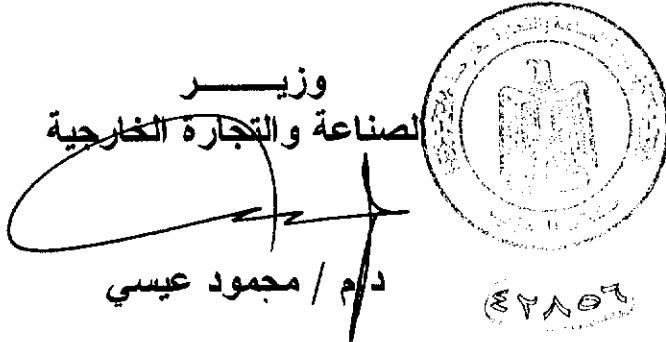 وزيـــــر
الصناعة والتجارة الخارجية
د.م / محمود عيسي
٤٢٨٥٦